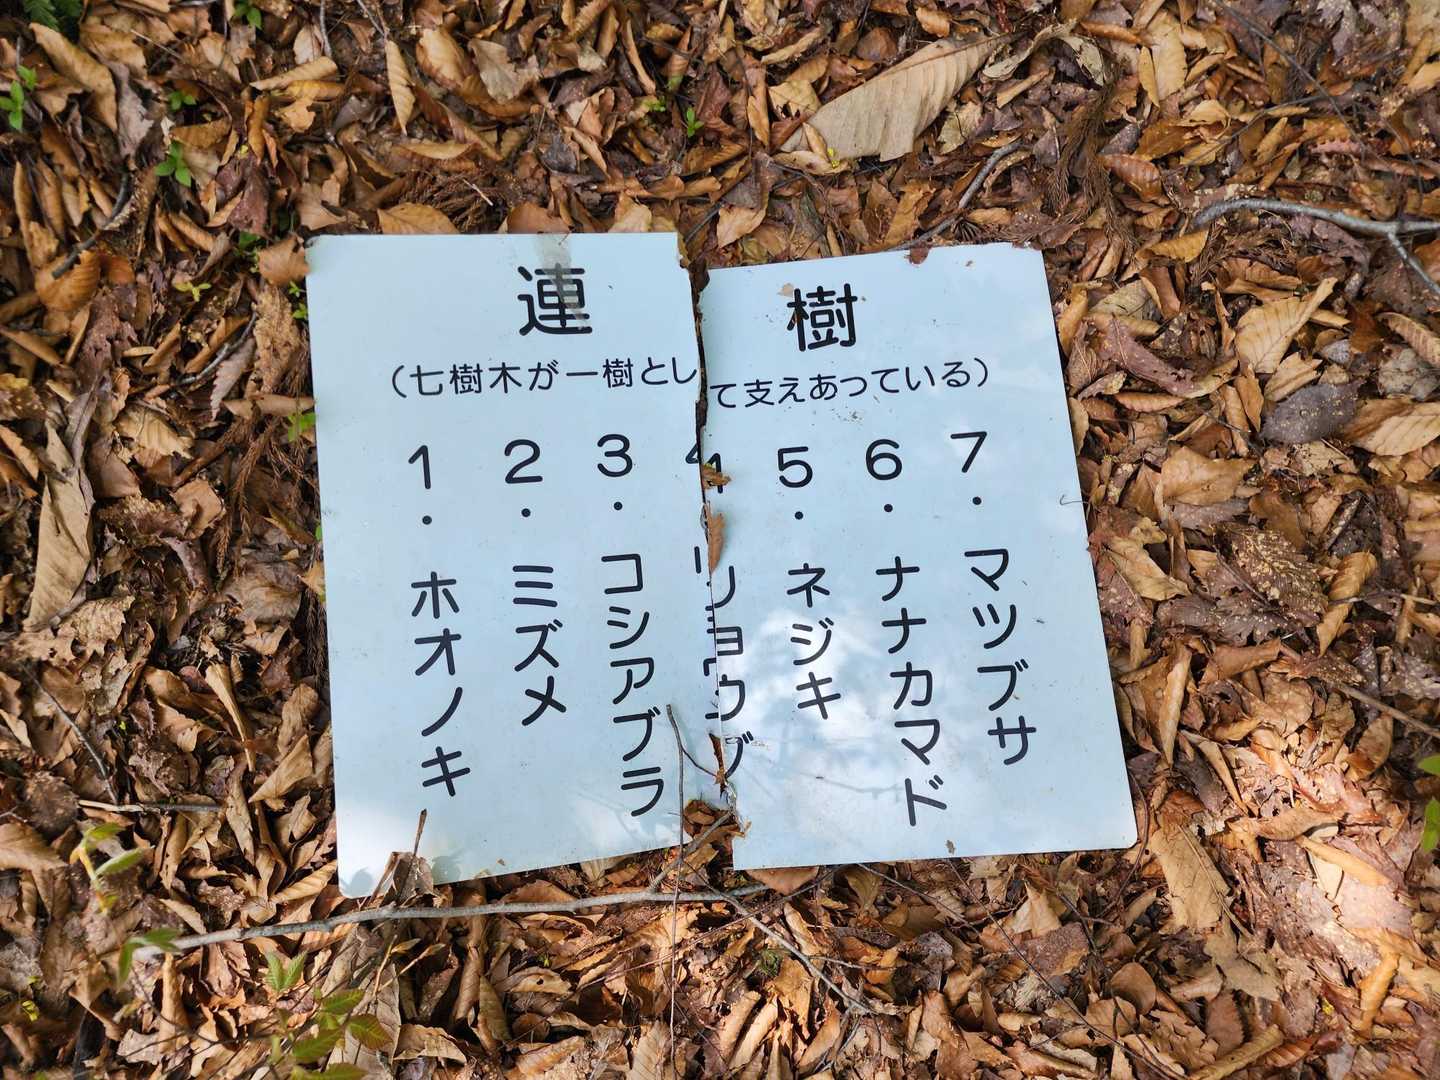 連樹
（七樹木が一樹として支えあっている）
1・ホオノキ
2・ミズメ
3・コシアブラ
4 リョウブ
5・ネジキ
6・ナナカマド
7・マツブサ